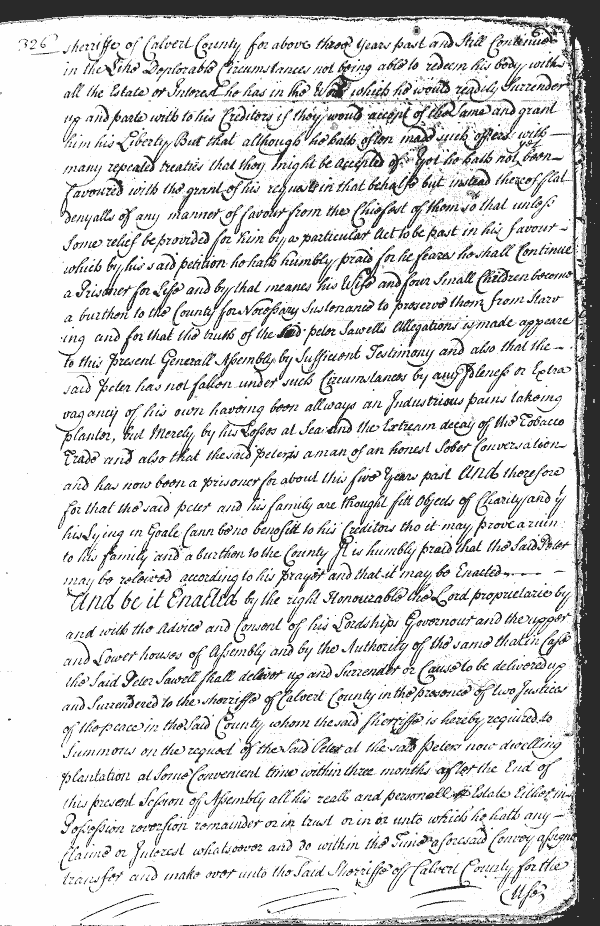 326
sherriffe of Calvert County for above three Years past and Still Continues
in the Like Deplorable Circumstances not being able to redeem his body with
all the Estate or Interest he has in the World which he would readily Surrender
up and parte with to his Creditors if they would accept of the Same and grant
him his Liberty But that although he hath often made such offers with
many repeated treaties that they might be accepted of Yet he hath not yet been
favoured with the grant of his request in that behalfe but instead thereof flat
denyalls of any manner of favour from the Chiefest of them so that unless
Some relief be provided for him by a particular Act to be past in his favour
which by his said petition he hath humbly praid for he fears he shall Continue
a Prisoner for Life and by that meanes his Wife and four Small Children become
a burthon to the County for Necessary Sustenance to preserve them from Starv
ing and for that the truth of the said peter Sawells Allegations is made appeare
to this present Generall Assembly by Sufficient Testimony and also that the
said Peter has not fallen under such Circumstances by any Idleness or Extra
vagancy of his own haveing been allways an Industrious pains takeing
planter, but Merely by his Losses at Sea and the Extream decay of the Tobacco
Trade and also that the said Peter is a man of an honest Sober Conversation
and has now been a prisoner for about this five Years past And therefore
for that the said peter and his family are thought fitt Objects of Charity and yt
his Lying in Goale Cann be no benefitt to his Creditors tho it may prove a ruin
to his family and a burthon to the County It is humbly praid that the Said Peter
may be releived according to his prayer and that it may be Enacted
And be it Enacted by the right Honourable the Lord proprietarie by
and with the Advice and Consent of his Lordships Governour and the upper
and Lower houses of Assembly and by the Authority of the same that in Case
the Said Peter Sawell shall deliver up and Surrender or Cause to be delivered up
and Surrendered to the sherriffe of Calvert County in the presence of two Justices
of the peace in the Said County whom the said Sherriffe is hereby required to
Summons on the request of the Said Peter at the said Peters now dwelling
plantation at Some Convenient time within three months after the End of
this present Session of Assembly all his reall and personall Estate Either in
Possession reversion remainder or in trust or in or unto which he hath any
Claime or Interest whatsoever and do within the Time aforesaid Convey assigne
transfer and make over unto the Said Sherriffe of Calvert County for the
Use